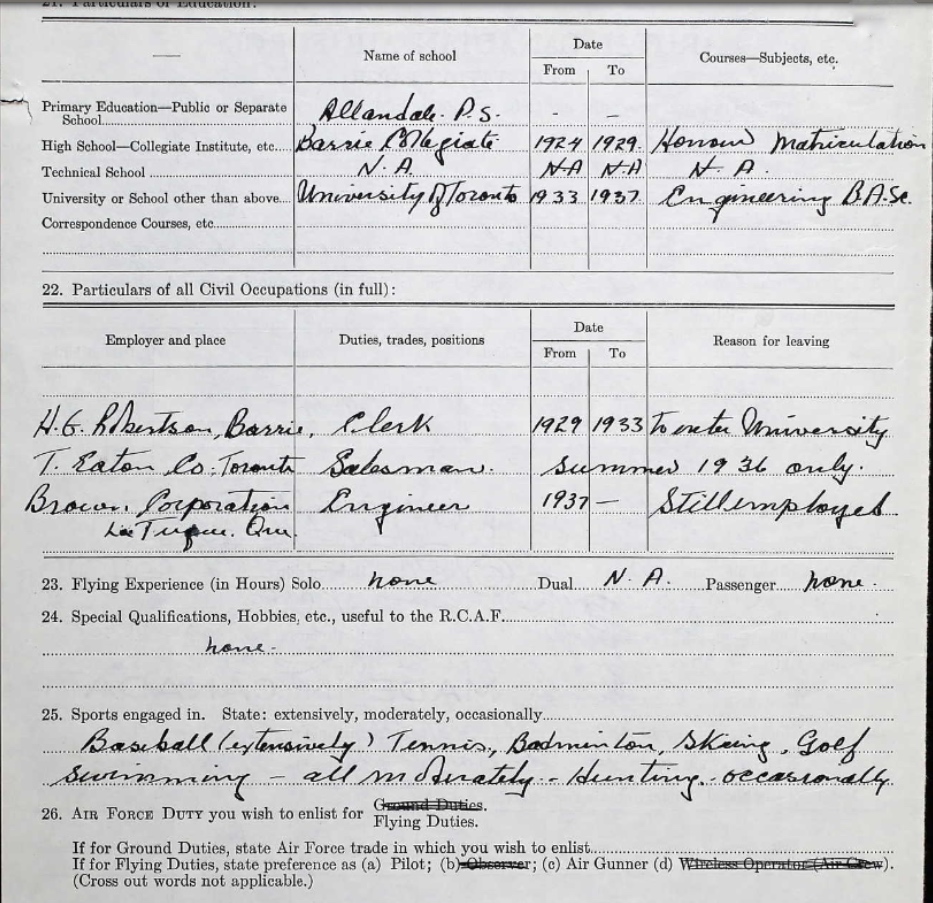 21. Particulars of Education:
— Name of school Date Courses—Subjects, etc.
From To
Primary Education—Public or Separate
School Allandale P.S. - –
High School—Collegiate Institute, etc. Barrie Collegiate 1924 1929 Honour Matriculation
Technical School N.A. N A N A N. A.
University or School other than above University of Toronto 1933 1937 Engineering B.A.Sc.
Correspondence Courses, etc.
22. Particulars of all Civil Occupations (in full):
Employer and place Duties, trades, positions Date Reason for leaving
From To
H.G. Robertson, Barrie, Clerk 1929 1933 to enter University
T. Eaton Co. Toronto Salesman. Summer 1936 only.
Brown Corporation Engineer 1937 – Still employed
La Tuque. Que.
23. Flying Experience (in Hours) Solo none Dual N. A. Passenger none.
24. Special Qualifications, Hobbies, etc., useful to the R.C.A.F.
none.
25. Sports engaged in. State: extensively, moderately, occasionally
Baseball (extensively) Tennis, Badminton, Skiing, Golf
Swimming – all moderately – Hunting. occasionally
26. AIR FORCE DUTY you wish to enlist for Ground Duties.
Flying Duties.
If for Ground Duties, state Air Force trade in which you wish to enlist
If for Flying Duties, state preference as (a) Pilot; (b) Observer; (c) Air Gunner (d) Wireless Operator (Air Crew).
(Cross out words not applicable.)